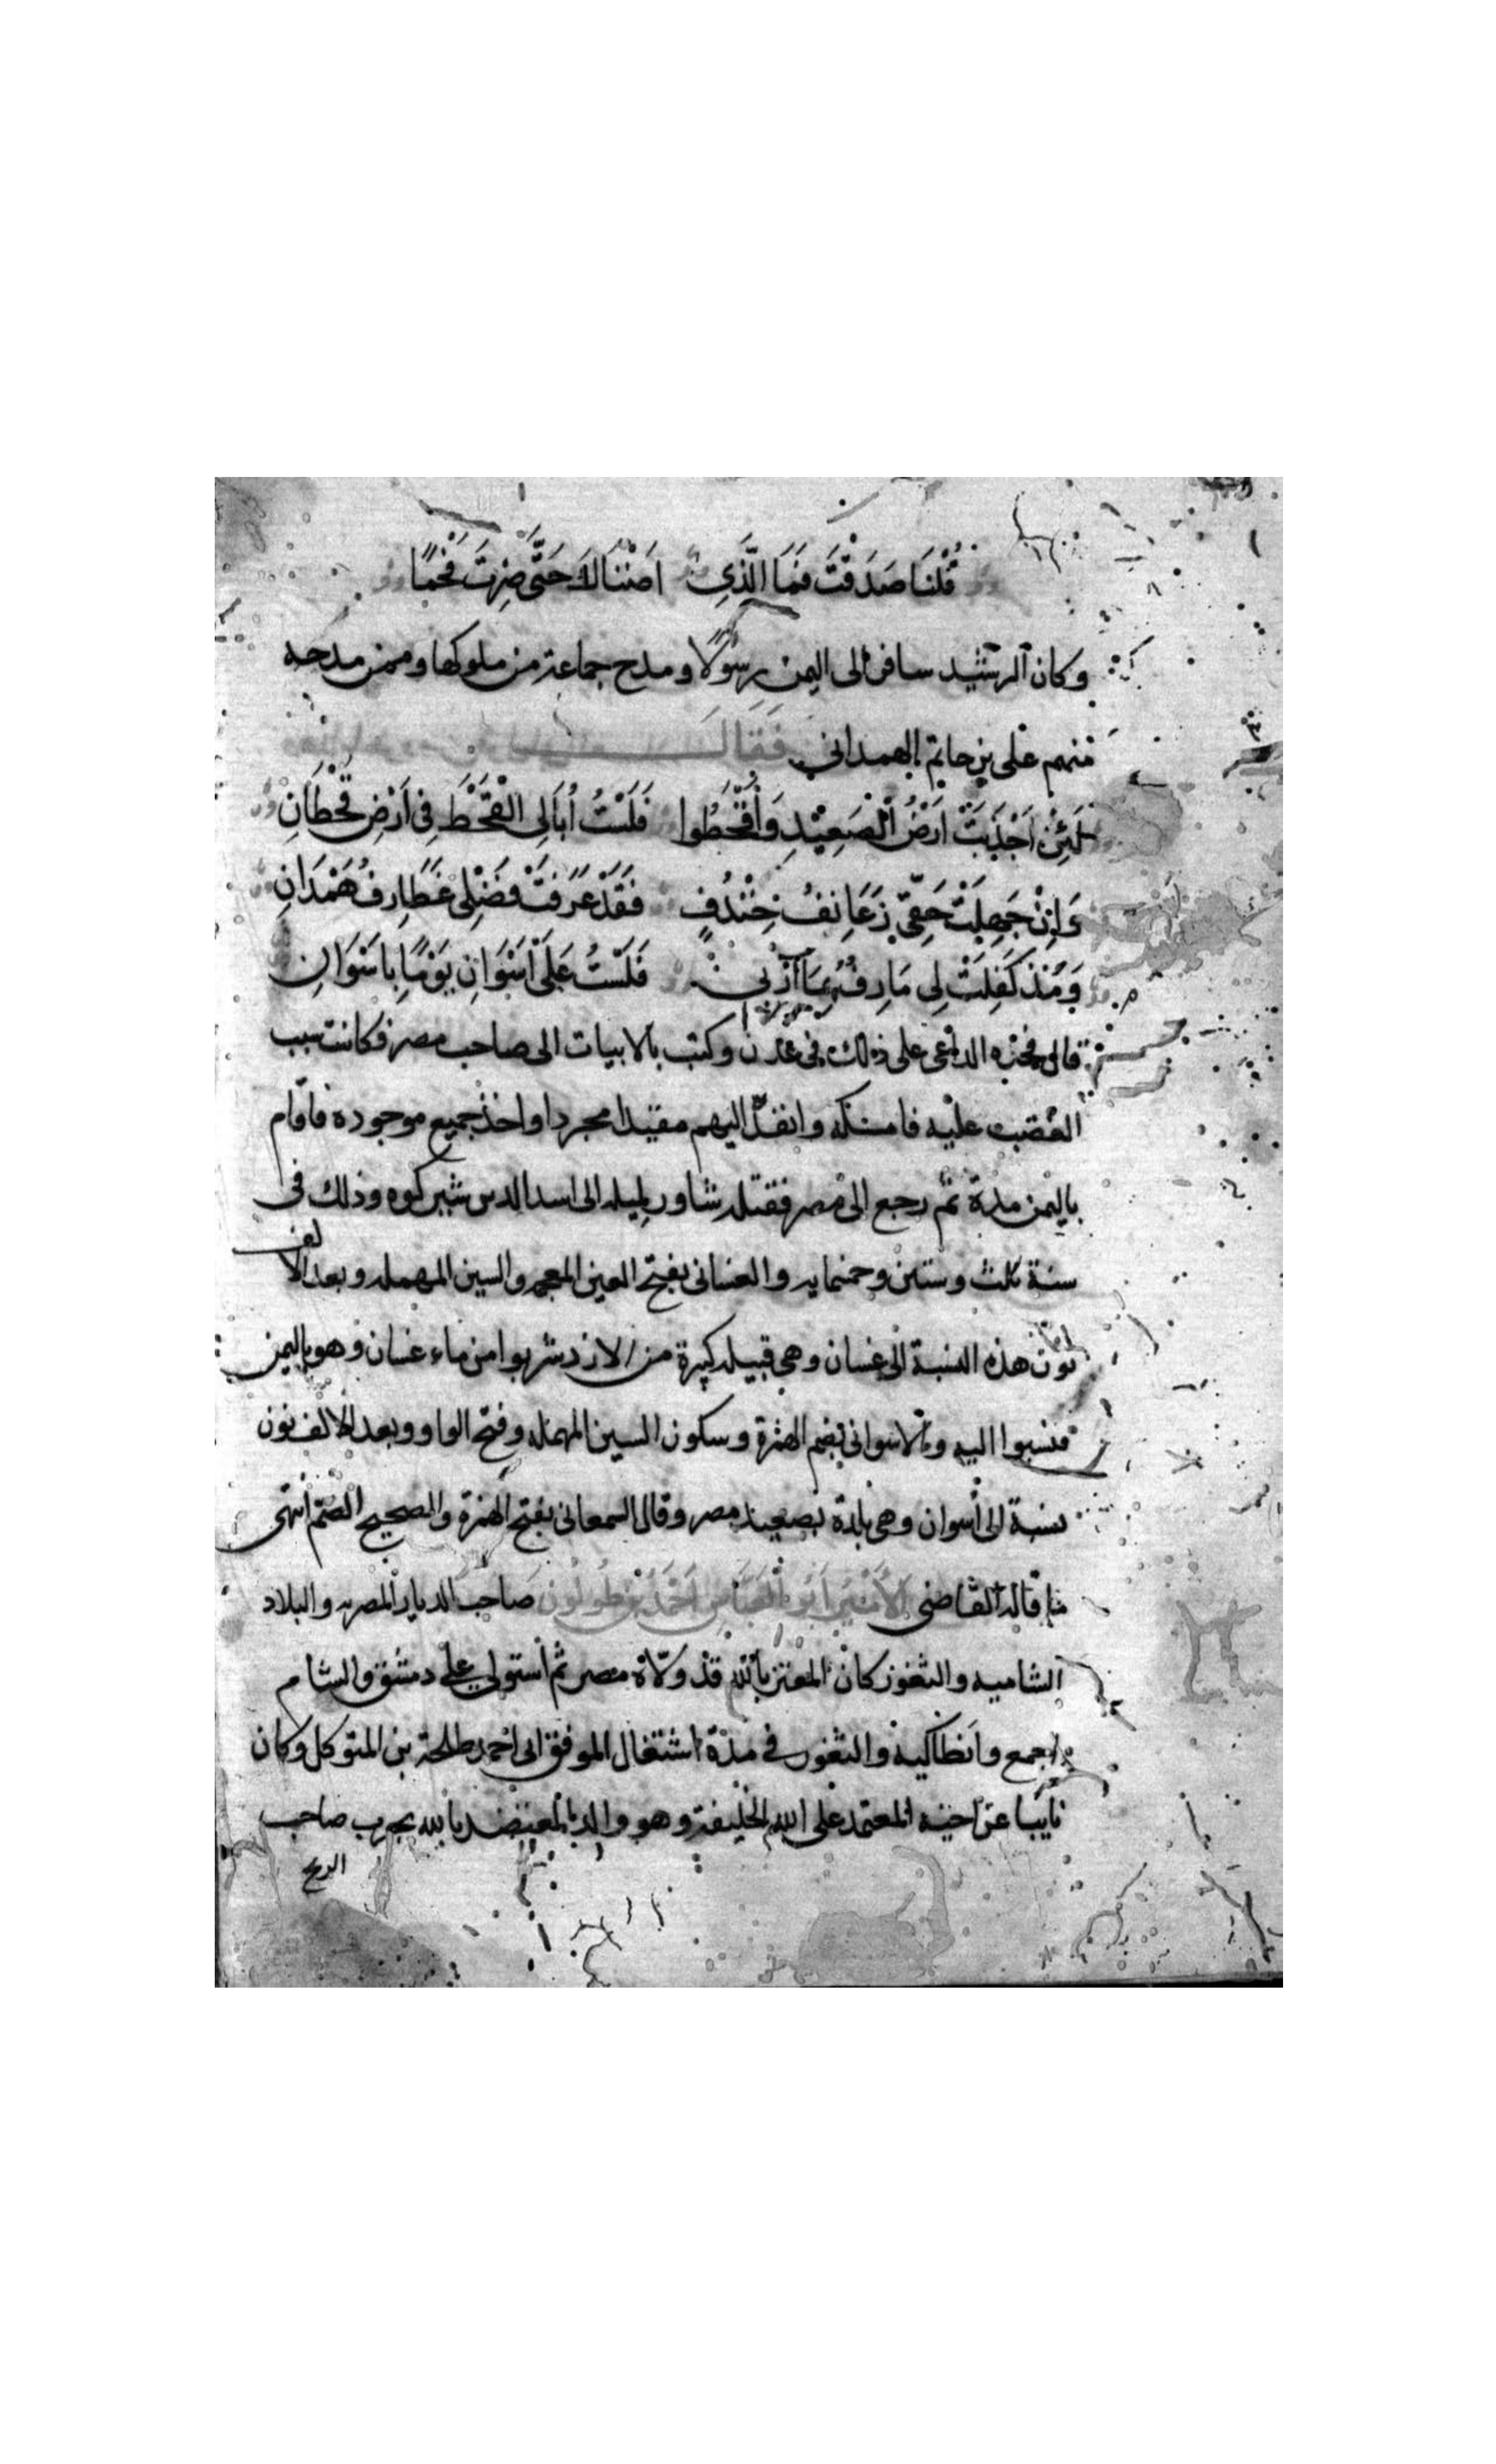 قُلْنَا صَدَقْتَ فَمَا الَّذِي اَضْنَاكَ حَتَّى صِرْتَ فَحْمًا
وكان الرشيد سافر الى اليمن رسولًا ومدح جماعة من ملوكها وممن مدحه
منهم على بن حاتم الهمداني فَقَالَ
لَئِنْ اَجْدَبَتْ اَرْضُ الصَعِيْدِ وَأَقْحَطُوا فَلَسْتُ أُبَالِي الْقَحْطَ فِي اَرْضِ قَحْطَانِ
وَاِنْ جَهِلَتْ حَقِّي زَعَانِفُ خِنْدُفٍ فَقَدْ عَرَفَتْ فَضْلِي غَطَارِفُ هَمْدَانِ
وَمُنْذ كَفِلَتْ لِي مَارِبُ بِمَآرِبِي فَلَسْتُ عَلَى اَسْوَانِ يَوْمًا بِاَسْوَانِ
قال فحسده الداعى على ذلك فى عدن وكتب بالابيات الى صاحب مصر فكانت سبب
الغضب عليه فامسكه وانفذ اليهم مقيدا مجردا واخذ جميع موجوده فاقام
باليمن مدة ثم رجع الى مصر فقتله شاور لميله الى اسد الدين شيركوه وذلك فى
سنة ثلث وستين وخمسمايه والغسانى بفتح الغين المعجمه والسين المهمله وبعد الالف
نون هذه النسبة الى غسان وهى قبيله كبيرة من الازد شربوا من ماء غسان وهو باليمن
فنسبوا اليه والاسوانى بضم الهمزة وسكون السين المهمله وفتح الواو وبعد الالف نون
نسبة الى أسوان وهى بلدة بصعيد مصر وقال السمعانى بفتح الهمزة والصحيح الضم انتهى
ما قاله القاضى الأَمْيْرُ اَبُو الْعَبَّاسِ اَحْمَدُ بْنُ طُولُون صاحب الديار المصريه والبلاد
الشاميه والثغور كان المعتز بالله قد ولّاه مصر ثم استولى على دمشق والشام
اجمع وانطاكية والثغور فى مدة اشتغال الموفق ابى احمد طلحة بن المتوكل وكان
نايبا عن اخيه المعتمد على الله الخليفة وهو والد المعتضد بالله بحرب صاحب
الزنج